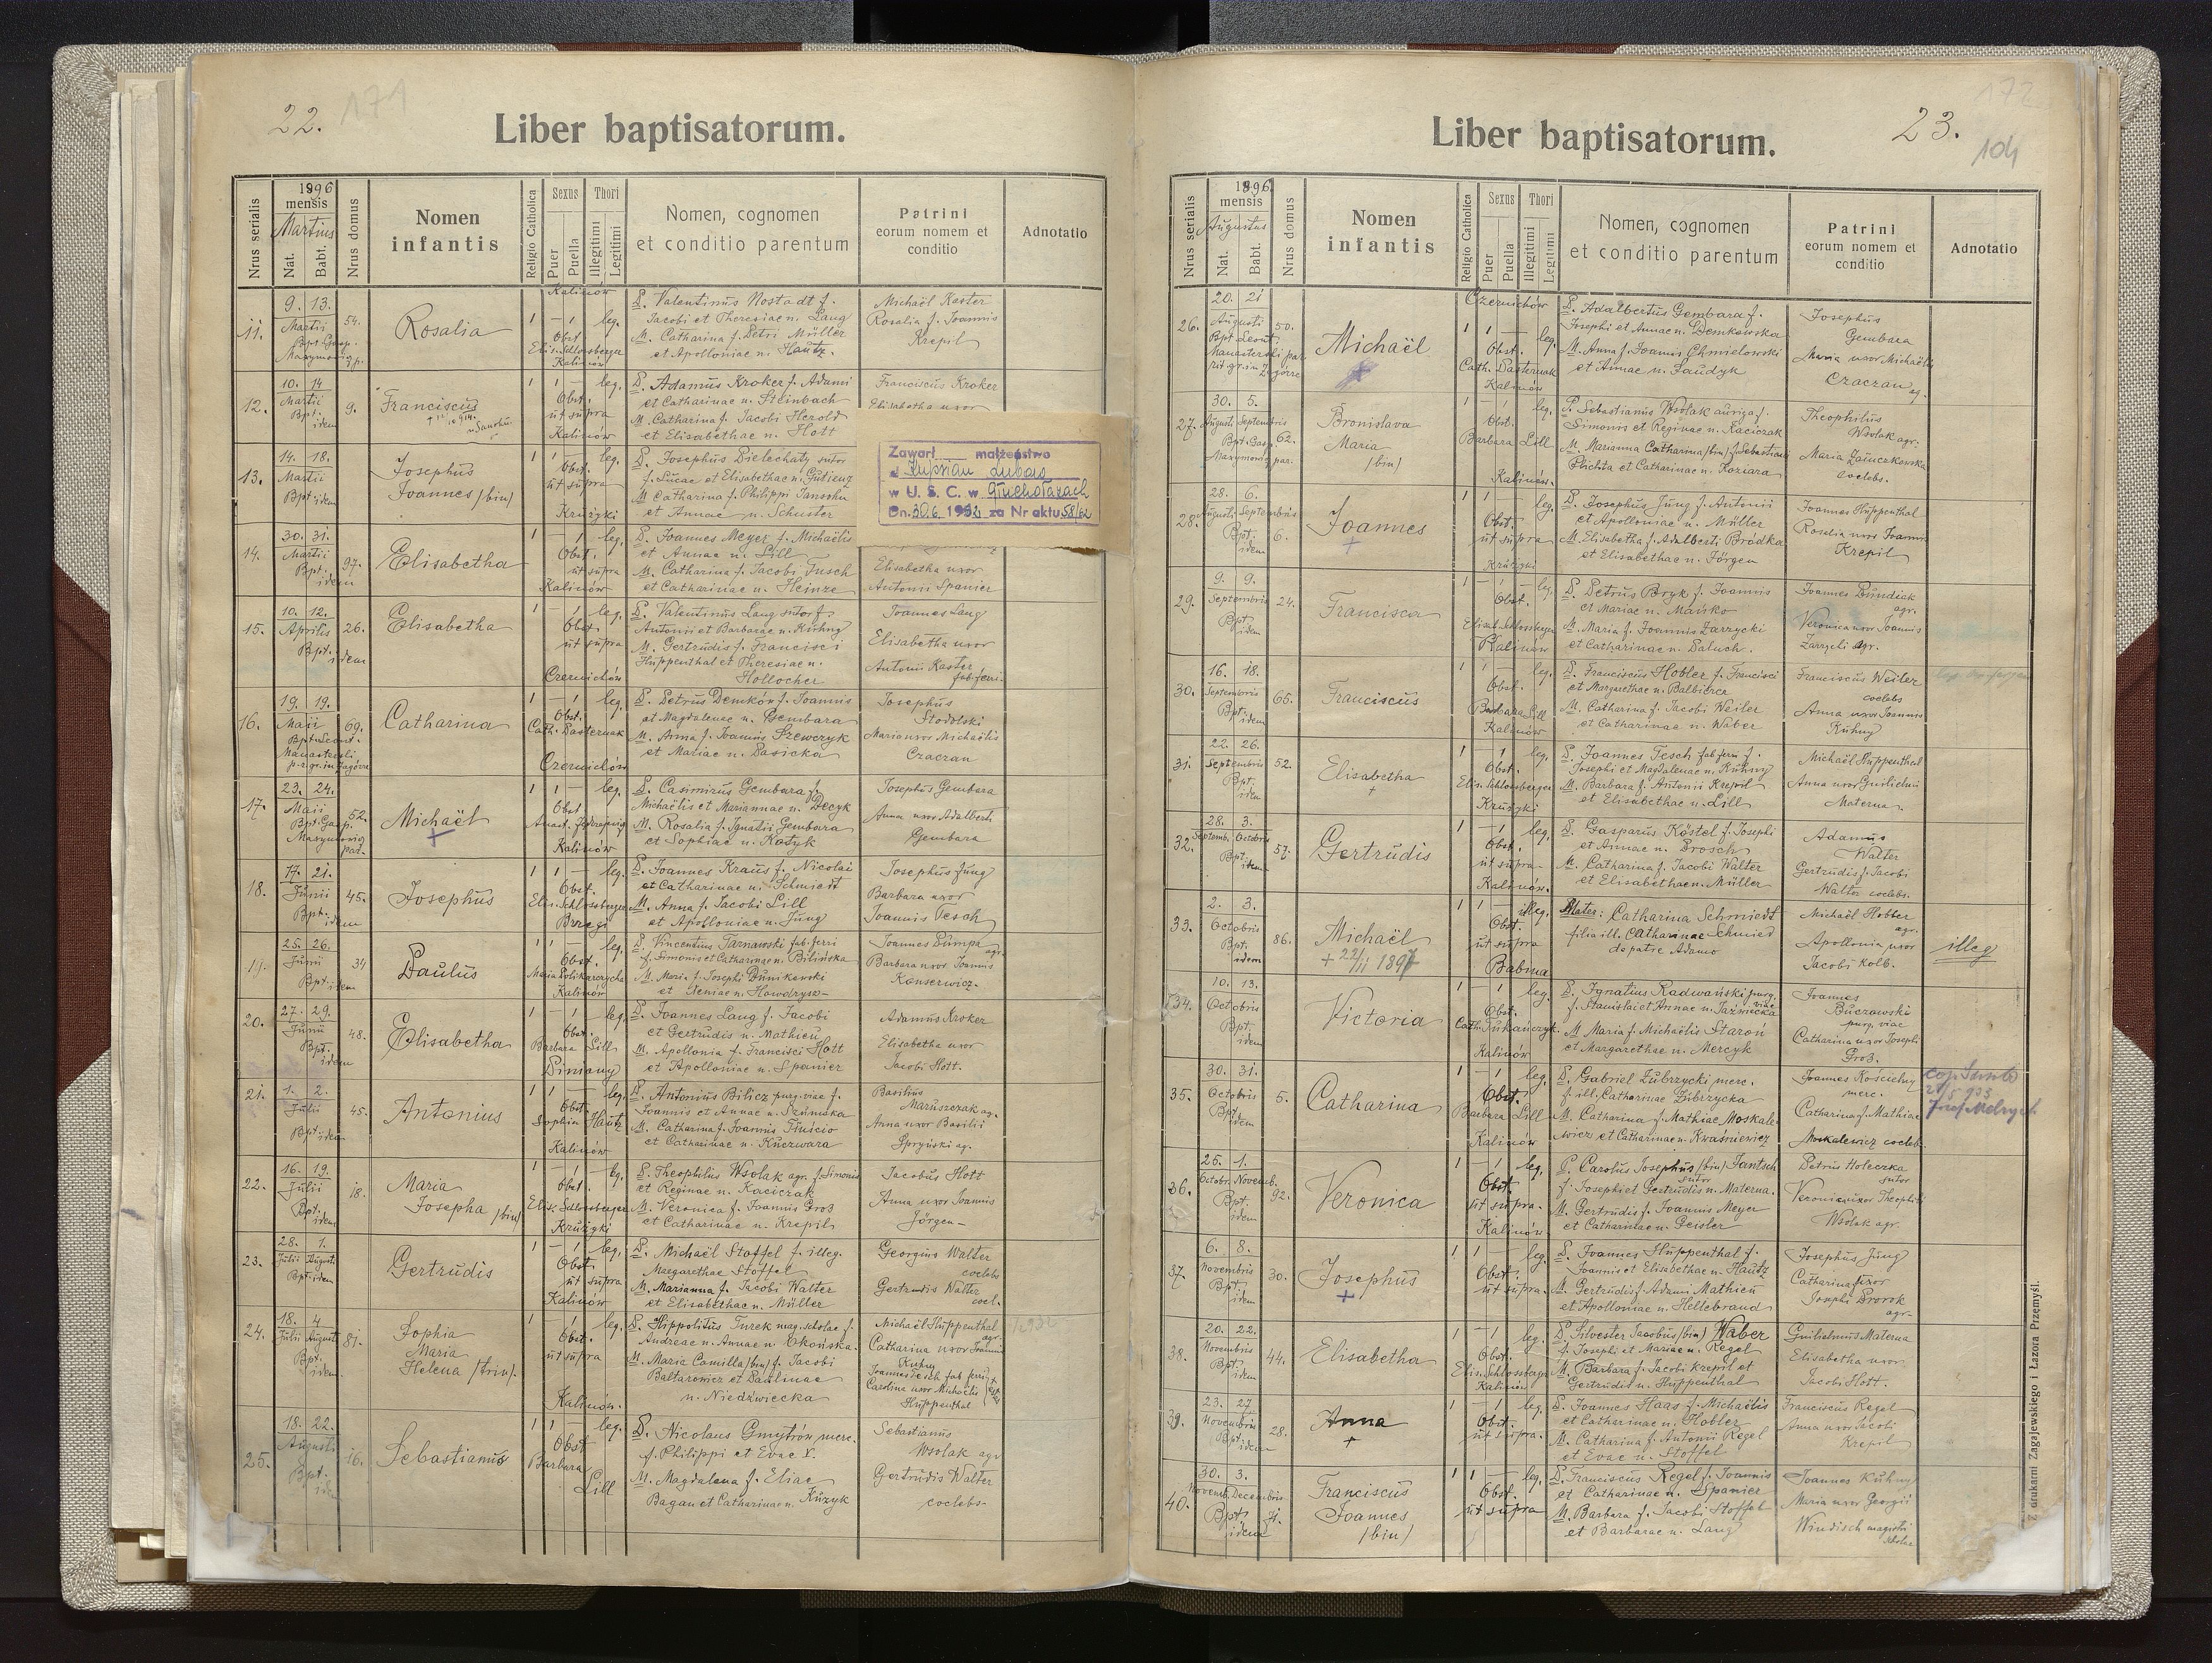 22.
171
Liber baptisatorum.
Nrus serialis
1896
mensis
Martius
Nat.
Babt.
Nrus domus
Nomen
infantis
Religio Catholica
Sexus
Puer
Puella
Thori
Illegitimi
Legitimi
Nomen, cognomen
et conditio parentum
Patrini
eorum nomem et
conditio
Adnotatio
11.
9. 13.
Martii
Bpt Gasp.
Maxymowicz p.
54.
Rosalia
Kalinów
1 – 1 leg.
Obst
Elis. Schlossberger
Kalinów
P. Valentinus Nostadt f.
Jacobi et Theresiae n. Lang
M. Catharina f. Petri Müller
et Apolloniae n. Hautz.
Michaël Kaster
Rosalia f. Joannis
Krepil
12.
10. 14
Martii
Bpt.
idem
9.
Franciscus
1 1 – leg.
Obst.
ut supra
Kalinów
P. Adamus Kroker f. Adami
et Catharinae n. Steinbach
M. Catharina f. Jacobi Herold
et Elisabethae n. Hott
Franciscus Kroker
Elisabetha uxor
13.
14. 18.
Martii
Bpt idem
Josephus
Joannes /bin/
1 1 – leg.
Obst.
ut supra
Kruzyki
P. Josephus Bielechaty sutor
f. Lucae et Elisabethae n. Gubienz
M Catharina f. Philippi Jansohn
et Annae n. Schuster
Zawarł małżeństwo
z Kuprian Lubas
w U. S. C. w Głuchołazach
Dn. 30.6 1962 za Nr aktu 58/62
14.
30. 31.
Martii
Bpt.
idem
97.
Elisabetha
1 – 1 leg.
Obst.
ut supra
Kalinów
P. Joannes Meyer f. Michaëlis
et Annae n. Lill
M. Catharina f. Jacobi Tusch
et Catharinae n. Heinze
Elisabetha uxor
Antonii Spanier
15.
10. 12.
Aprilis
Bpt. idem
26.
Elisabetha
1 – 1 leg.
Obst.
ut supra
Czernichów
P. Valentinus Lang sutor f.
Antonii et Barbarae n. Kühny
M. Gertrudis f. Francisci
Huppenthal et Theresiae n.
Hollocher
Joannes Lang
Elisabetha uxor
Antonii Kaster
fab. ferri.
16.
19. 19.
Maji
Bpt. Leont.
Manasterski
p. r. gr. in Zagórze
69.
Catharina
1 – 1 leg.
Obst.
Cath. Pasternak
Czernichów
P. Petrus Demków f. Joannis
et Magdalenae n. Gembara
M. Anna f. Joannis Szewczyk
et Mariae n. Pasicka
Josephus
Stodolski
Maria uxor Michaëlis
Czaczan
17.
23. 24.
Maii
Bpt. Gasp.
Maxymowicz
par.
52.
Michaël
+
1 1 – leg.
Obst
Kalinów
P. Casimirus Gembara f.
Michaëlis et Mariannae n. Decyk
M. Rosalia f. Ignatii Gembara
et Sophiae n. Kostyk
Josephus Gembara
Anna uxor Adalberti
Gembara
18.
17. 21.
Junii
Bpt. idem
45.
Josephus
1 1 – leg.
Obst.
Elis. Schlossberger
Brzegi
P. Joannes Kraus f. Nicolai
et Catharinae n. Schmiedt
M. Anna f. Jacobi Lill
et Apolloniae n. Jung
Josephus Jung
Barbara uxor
Joannis Tesch
19.
25. 26.
Junii
Bpt. idem
34
Paulus
1 1 – leg.
Obst.
Maria Polikarczycha
Kalinów
P. Vincentius Tarnawski fab. ferri
f. Simonis et Catharinae n. Bilińska
M. Maria f. Josephi Dunikowski
et Xeniae n. Howdrysz
Joannes Dumpa agr.
Barbara uxor Joannis
Konserwicz
20.
27. 29.
Junii
Bpt.
idem
48.
Elisabetha
1 – 1 leg.
Obst.
Barbara Lill
Biniany
P. Joannes Lang f. Jacobi
et Gertrudis n. Mathieu
M. Apollonia f. Francisci Hott
et Apolloniae n. Spanier
Adamus Kroker
Elisabetha uxor
Jacobi Hott.
21.
1. 2.
Julii
Bpt. idem
45.
Antonius
1 1 – leg.
Obst.
Sophia Hautz
Kalinów
P. Antonius Bilicz purg. viae f.
Joannis et Annae n. Szumska
M. Catharina f. Joannis Tinicio
et Catharinae n. Kuczwara
Basilius
Maruszczak ag.
Anna uxor Basilii
Spryński ag.
22.
16. 19.
Julii
Bpt.
idem
18.
Maria
Josepha /bin/
1 – 1 leg.
Obst.
Elis. Schlossberger
Kruzyki
P. Theophilus Wsolak agr. f. Simonis
et Reginae n. Kaciczak
M. Veronica f. Joannis Gros
et Catharinae n. Krepil
Jacobus Hott
Anna uxor Joannis
Jörgen
23.
28. 1.
Julii Augusti
Bpt. idem
Gertrudis
1 – 1 leg.
Obst.
ut supra
Kalinów
P. Michaël Stoffel f. illeg.
Margarethae Stoffel
M. Marianna f. Jacobi Walter
et Elisabethae n. Müller
Georgius Walter
coelebs
Gertrudis Walter
coel.
24.
18. 4
Julii Augusti
Bpt.
idem
81.
Sophia
Maria
Helena /trin/.
1 – 1 leg.
Obst.
ut supra
Kalinów.
P. Hippolitus Turek mag. scholae f.
Andreae n. Annae n. Okońska.
M. Maria Camilla /bin/ f. Jacobi
Baltarowicz et Paulinae
n. Niedźwiecka
Michaël Huppenthal
agr.
Catharina uxor Joannis
Kuhny
Joannes Tesch fab ferri
Carolina uxor Michaëlis
Huppenthal
25.
18. 22.
Augusti
Bpt.
16.
Sebastianus
1 1 – leg.
Obst
Barbara
Lill
P. Nicolaus Gmytrów merc.
f. Philippi et Evae V.
M. Magdalena f. Eliae
Bagan et Catharinae n. Kuzyk
Sebastianus
Wsolak agr
Gertrudis Walter
coelebs
23.
172
104
Liber baptisatorum.
Nrus serialis
1896.
mensis
Augustus
Nat.
Babt.
Nrus domus
Nomen
infantis
Religio Catholica
Sexus
Puer
Puella
Thori
Illegitimi
Legitimi
Nomen, cognomen
et conditio parentum
Patrini
eorum nomem et
conditio
Adnotatio
26.
20. 21
Augusti
Bpt. Leont.
Manasterski par.
rit. gr. in Zagórze
50.
Michaël
Czernichów
1 1 – leg.
Obst.
Cath. Pasternak
Kalinów
P. Adalbertus Gembara f.
Josephi et Annae n. Demkowska
M. Anna f. Joannis Chmielowski
et Annae n. Faudyk
Josephus
Gembara
Maria uxor Michaëlis
Czaczan ag.
27.
30. 5.
Augusti Septembris
Bpt. Gasp.
Maxymowicz par.
62.
Bronislava
Maria
/bin/
1 – 1 leg.
Obst.
Barbara Lill
Kalinów.
P. Sebastianus Wsolak auriga f.
Simonis et Reginae n. Kaciczak
M. Marianna Catharina /bin/ f. Sebastiani
Plichta et Catharinae n. Koziara
Theophilus
Wsolak agr.
Maria Zaiuczkowska
coelebs.
28.
28. 6.
Augusti Septembris
Bpt.
idem
6.
Joannes
+
1 1 – leg.
Obst.
ut supra
Kruzyki
P. Josephus Jung f. Antonii
et Apolloniae n. Müller
M. Elisabetha f. Adalberti Bródka
et Elisabethae n. Jörgen
Joannes Huppenthal
Rosalia uxor Joannis
Krepil
29.
9. 9.
Septembris
Bpt.
idem
24.
Francisca
1 – 1 leg.
Obst.
Elisab. Schlossberger
Kalinów
P. Petrus Bryk f. Joannis
et Mariae n. Mańko
M. Maria f. Joannis Zarzycki
et Catharinae n. Paluch.
Joannes Dundiak
agr.
Veronica uxor Joannis
Zarzycki agr.
30.
16. 18.
Septembris
Bpt.
idem
65.
Franciscus
1 1 – leg.
Obst.
Barbara Lill
Kalinów
P. Franciscus Hobler f. Francisci
et Margarethae n. Balbierer
M. Catharina f. Jacobi Weiler
et Catharinae n. Waber
Franciscus Weiler
coelebs
Anna uxor Joannis
Kühny
31.
22. 26.
Septembris
Bpt.
idem
52.
Elisabetha
+
1 – 1 leg.
Obst.
Elis. Schlossberger
Kruzyki
P. Joannes Tesch fab ferri f.
Josephi et Magdalenae n. Kuhny
M. Barbara f. Antonii Krepil
et Elisabethae n. Lill
Michaël Huppenthal
Anna uxor Guilielmi
Materna
32.
28. 3.
Septemb. Octobris
Bpt.
idem
57.
Gertrudis
1 – 1 leg.
Obst.
ut supra
Kalinów.
P. Gasparus Köstel f. Josephi
et Annae n. Brosch
M. Catharina f. Jacobi Walter
et Elisabethae n. Müller
Adamus
Walter
Gertrudis f. Jacobi
Walter coelebs.
33.
2. 3.
Octobris
Bpt.
idem
86.
Michaël
+ 22/11 1897
1 1 – illeg.
Obst.
ut supra
Babina
Mater: Catharina Schmiedt
filia ill. Catharinae Schmied
de patre Adamo
Michaël Hobler
agr.
Apollonia uxor
Jacobi Kolb.
illeg
34.
10. 13.
Octobris
Bpt.
idem
Victoria
1 – 1 leg.
Obst.
Cath. Tukańczyk.
Kalinów
P. Ignatius Radwański purg. viae
f. Stanislai et Annae n. Jaźnicka
M Maria f. Michaëlis Staroń
et Margarethae n. Mercyk
Joannes
Buczowski
purg. viae
Catharina uxor Josephi
Gros.
35.
30. 31.
Octobris
Bpt.
idem
5.
Catharina
1 – 1 leg.
Obst.
Barbara Lill
Kalinów
P. Gabriel Zubrzycki merc.
f. ill. Catharinae Zubrzycka
M. Catharina f. Mathiae Moskale-
wicz et Catharinae n. Kwaśniewicz
Joannes Kościelny
merc.
Catharina f. Mathiae
Moskalewicz coelebs
36.
25. 1.
Octobr. Novemb.
Bpt.
idem
92.
Veronica
1 – 1 leg.
Obst.
ut supra.
Kalinów
P. Carolus Josephus /bin/ Jantsch
sutor
f. Josephi et Gertrudis n. Materna.
M. Gertrudis f. Joannis Meyer
et Catharinae n. Geisler
Petrus Holeczka
sutor
Veronica uxor Theophili
Wsolak agr.
37.
6. 8.
Novembris
Bpt.
idem
30.
Josephus
+
1 1 – leg.
Obst.
ut supra.
P. Joannes Huppenthal f.
Joannis et Elisabethae n. Hautz
M. Gertrudis f. Adami Mathieu
et Apolloniae n. Hellebrand
Josephus Jung
Catharina uxor
Josephi Prorok
agr.
38.
20. 22.
Novembris
Bpt.
idem
44.
Elisabetha
1 – 1 leg.
Obst.
Elis. Schlossberger
Kalinów
P. Silvester Jacobus /bin/ Waber
f. Josephi et Mariae n. Regel
M. Barbara f. Jacobi Krepil et
Gertrudis n. Huppenthal
Guilielmus Materna
Elisabetha uxor
Jacobi Hott.
39.
23. 27
Novembris
Bpt. idem
28.
Anna
+
1 – 1 leg.
Obst.
ut supra.
P. Joannes Haas f. Michaëlis
et Catharinae n. Hobler
M. Catharina f. Antonii Regel
et Evae n. Stoffel
Franciscus Regel
Anna uxor Jacobi
Krepil
40.
30. 3.
Novemb. Decembris
Bpt.
idem
Franciscus
Joannes
/bin/
1 1 – leg.
Obst.
ut supra
P. Franciscus Regel f. Joannis
et Catharinae n. Spanier
M. Barbara f. Jacobi Stoffel
et Barbarae n. Lang
Joannes Kuhny
Maria uxor Georgii
Windisch magistri
scholae
Z drukarni Zagajewskiego i Łazora Przemyśl.